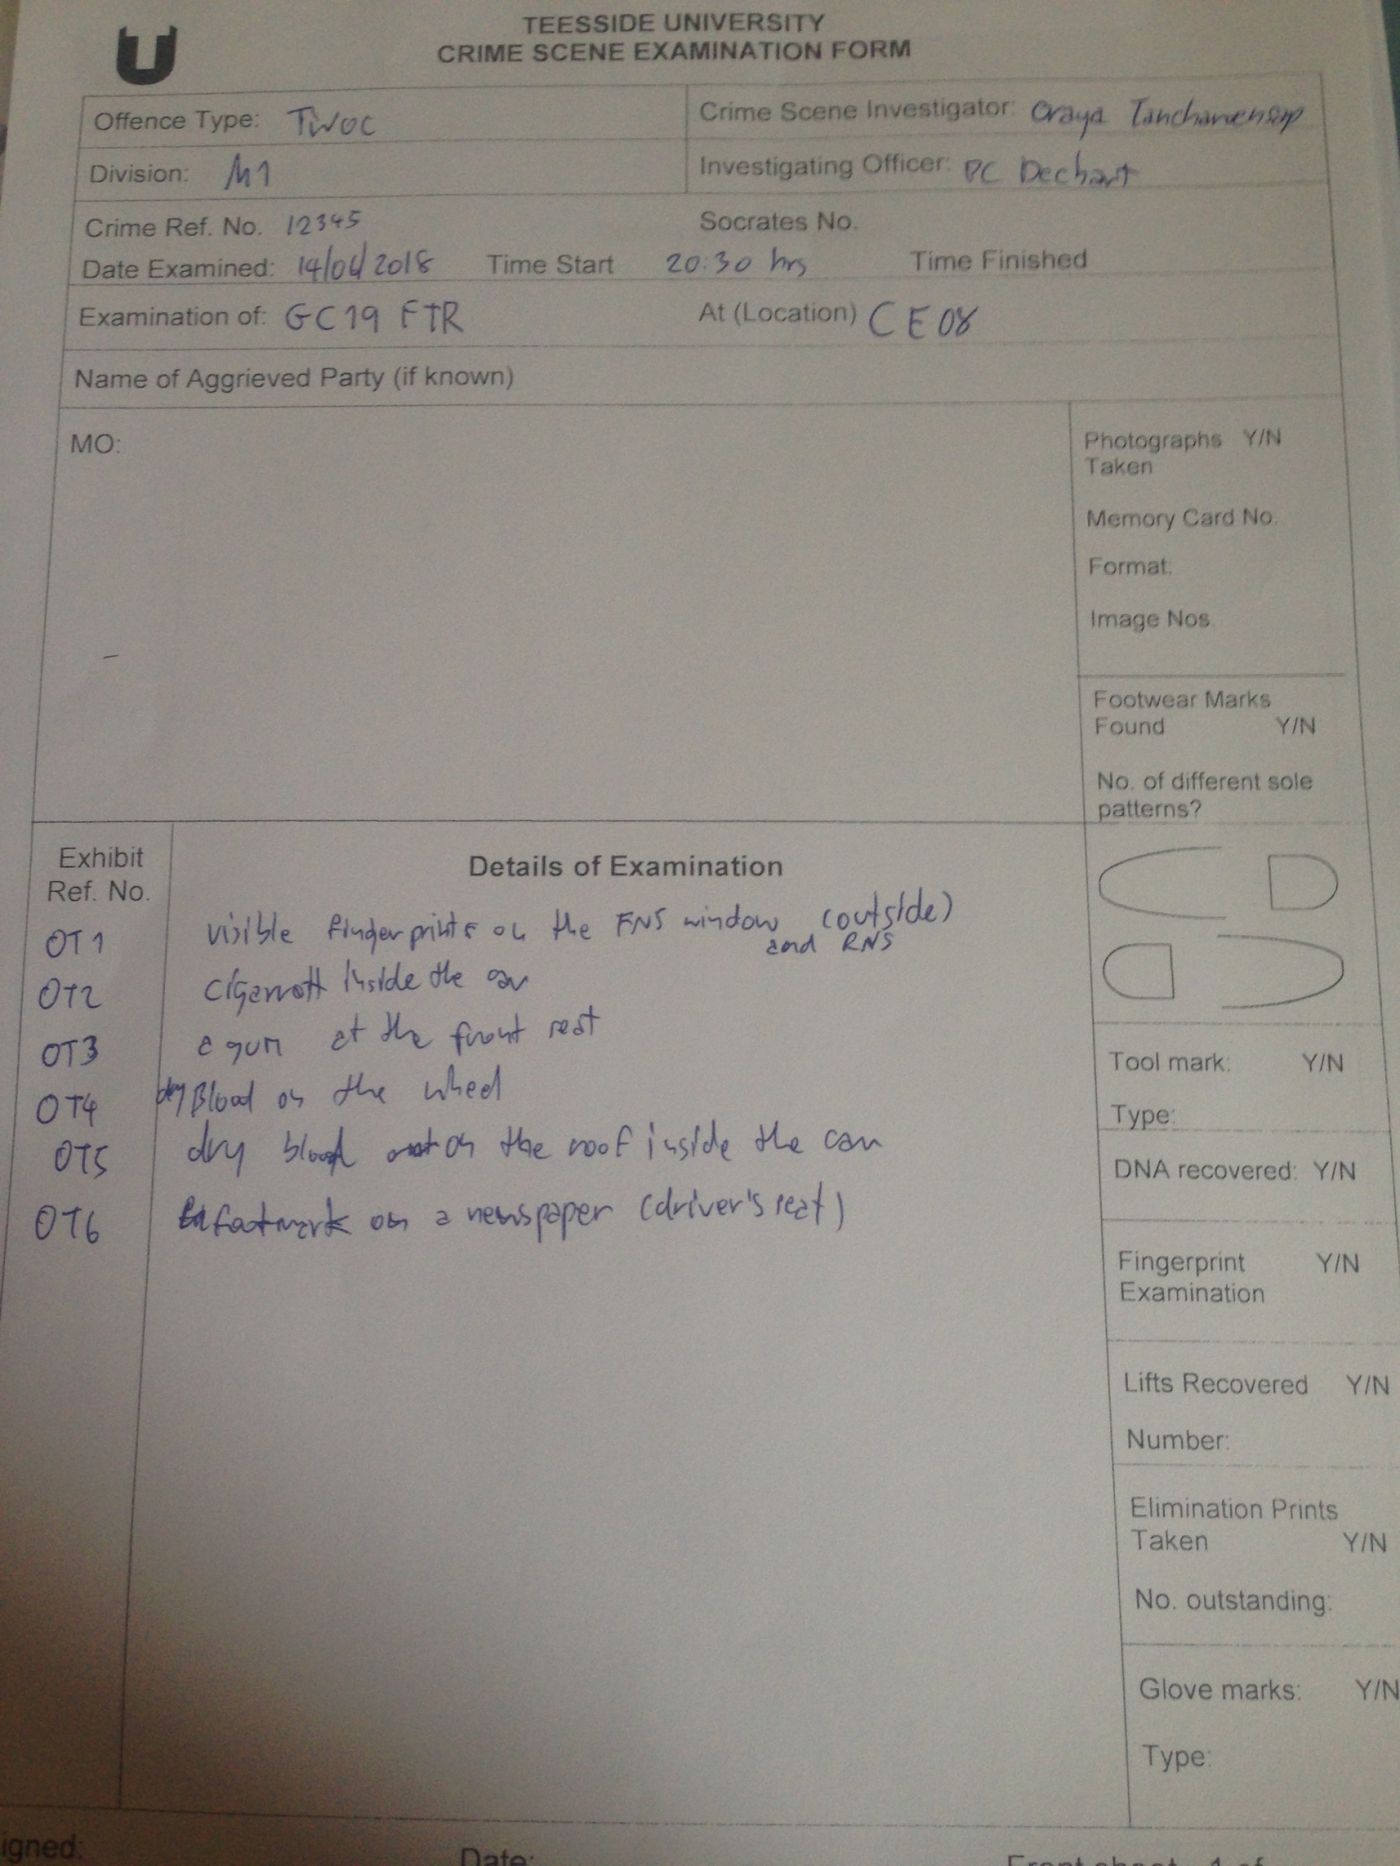 TEESSIDE UNIVERSITY
CRIME SCENE EXAMINATION FORM
Offence Type: TWOC
Crime Scene Investigator: Oraya
Division: M1
Investigating Officer: PC Dechart
Crime Ref. No. 12345
Socrates No.
Date Examined: 14/04/2018 Time Start 20:30 hrs Time Finished
Examination of: GC19 FTR At (Location) CE08
Name of Aggrieved Party (if known)
MO:
Photographs Y/N
Taken
Memory Card No.
Format:
Image Nos.
Footwear Marks
Found Y/N
No. of different sole
patterns?
Exhibit
Ref. No.
Details of Examination
OT1 visible fingerprints on the FNS window (outside)
and RNS
OT2 cigerrett inside the car
OT3 a gun at the front seat
OT4 dry Blood on the wheel
OT5 dry blood on the roof inside the car
OT6 footmark on a newspaper (driver's seat)
Tool mark: Y/N
Type:
DNA recovered: Y/N
Fingerprint Y/N
Examination
Lifts Recovered Y/N
Number:
Elimination Prints
Taken Y/N
No. outstanding:
Glove marks: Y/N
Type:
igned:
Date: